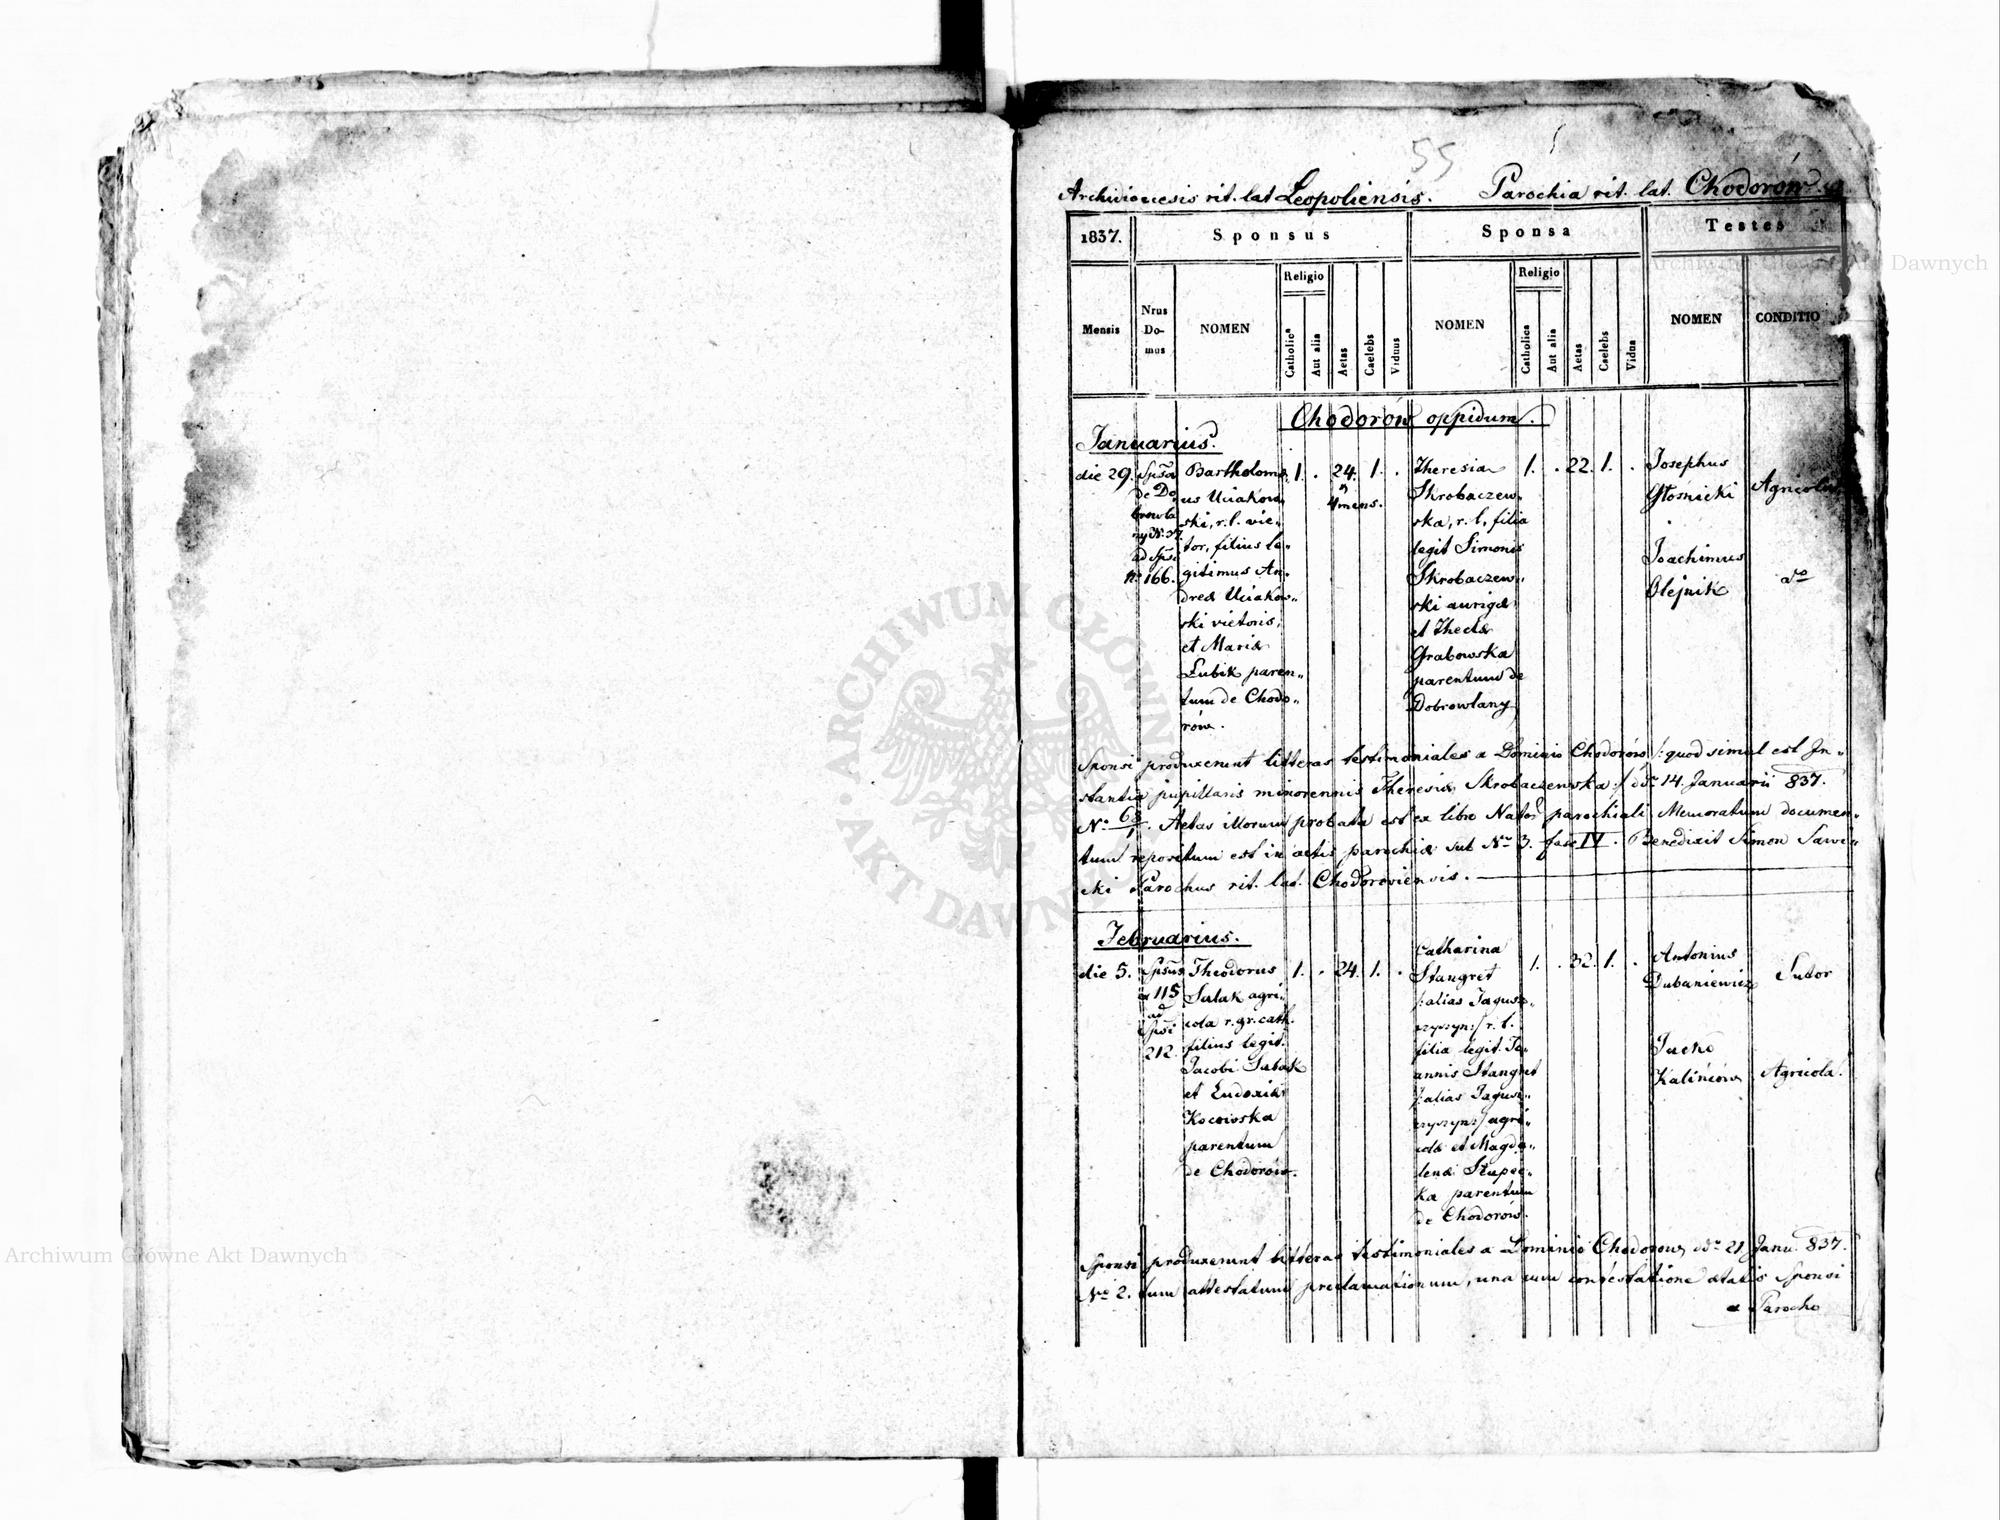 55
Archidioecesis rit. lat Leopoliensis. Parochia rit. lat. Chodorów
1837. Sponsus Sponsa Testes
Mensis Nrus Domus NOMEN Religio Catholica Aut alia Aetas Caelebs Viduus NOMEN Religio Catholica Aut alia Aetas Caelebs Vidua NOMEN CONDITIO
Chodorów oppidum.
Januarius.
die 29.
Spsa
de Do
browla
ny N. 37.
ad Spsi
N. 166.
Bartholomæ
us Uciakow
ski, r. l. vie„
tor, filius le„
gitimus An„
dreæ Uciakow„
ski vietoris,
et Mariæ
Lubik paren„
tum de Chodo„
rów.
1. . 24. 1. .
4 mens.
Theresia
Skrobaczew„
ska, r. l, filia
legit Simonis
Skrobaczew„
ski aurigæ
et Theclæ
Grabowska
parentum de
Dobrowlany
1. . 22. 1. .
Josephus
Głośnicki
Agricola
Joachimus
Olejnik
do
Sponsi produxerunt litteras testimoniales a Dominio Chodorów /: quod simul est In„
stantia pupillaris minorennis Theresiæ Skrobaczewska :/ ddo 14. Januarii 837.
No . Aetas illorum probata est ex libro Nator parochiali. Memoratum documen„
tum repositum est in actis parochiæ sub Nro 3. fasc IV. Benedixit Simon Sawi„
cki Parochus rit. lat. Chodoroviensis.
Februarius.
die 5.
Spsus
ex 115
ad
Spsi
212.
Theodorus
Sulak agri„
cola r. gr. cath.
filius legit.
Jacobi Sulak
et Eudoxiæ
parentum
de Chodorów.
1. . 24. 1. .
Catharina
Stangret
/:alias Jagusz„
czyszyn:/ r. l.
filia legit. Jo„
annis Stangret
/:alias Jagusz„
czyszyn:/ agri„
colæ et Magda„
lenæ Słupec„
ka parentum
de Chodorów.
1. . 32. 1. .
Antonius
Dubaniewicz
Sutor
Jucko
Kalińców
Agricola.
Sponsi produxerunt litteras testimoniales a Dominio Chodorow, ddo 21 Janu. 837.
No 2. tum attestatum proclamationum, una cum contestatione ætatis Sponsi
a Parocho
ARCHIWUM GŁÓWNE AKT DAWNYCH
Archiwum Główne Akt Dawnych
Archiwum Główne Akt Dawnych